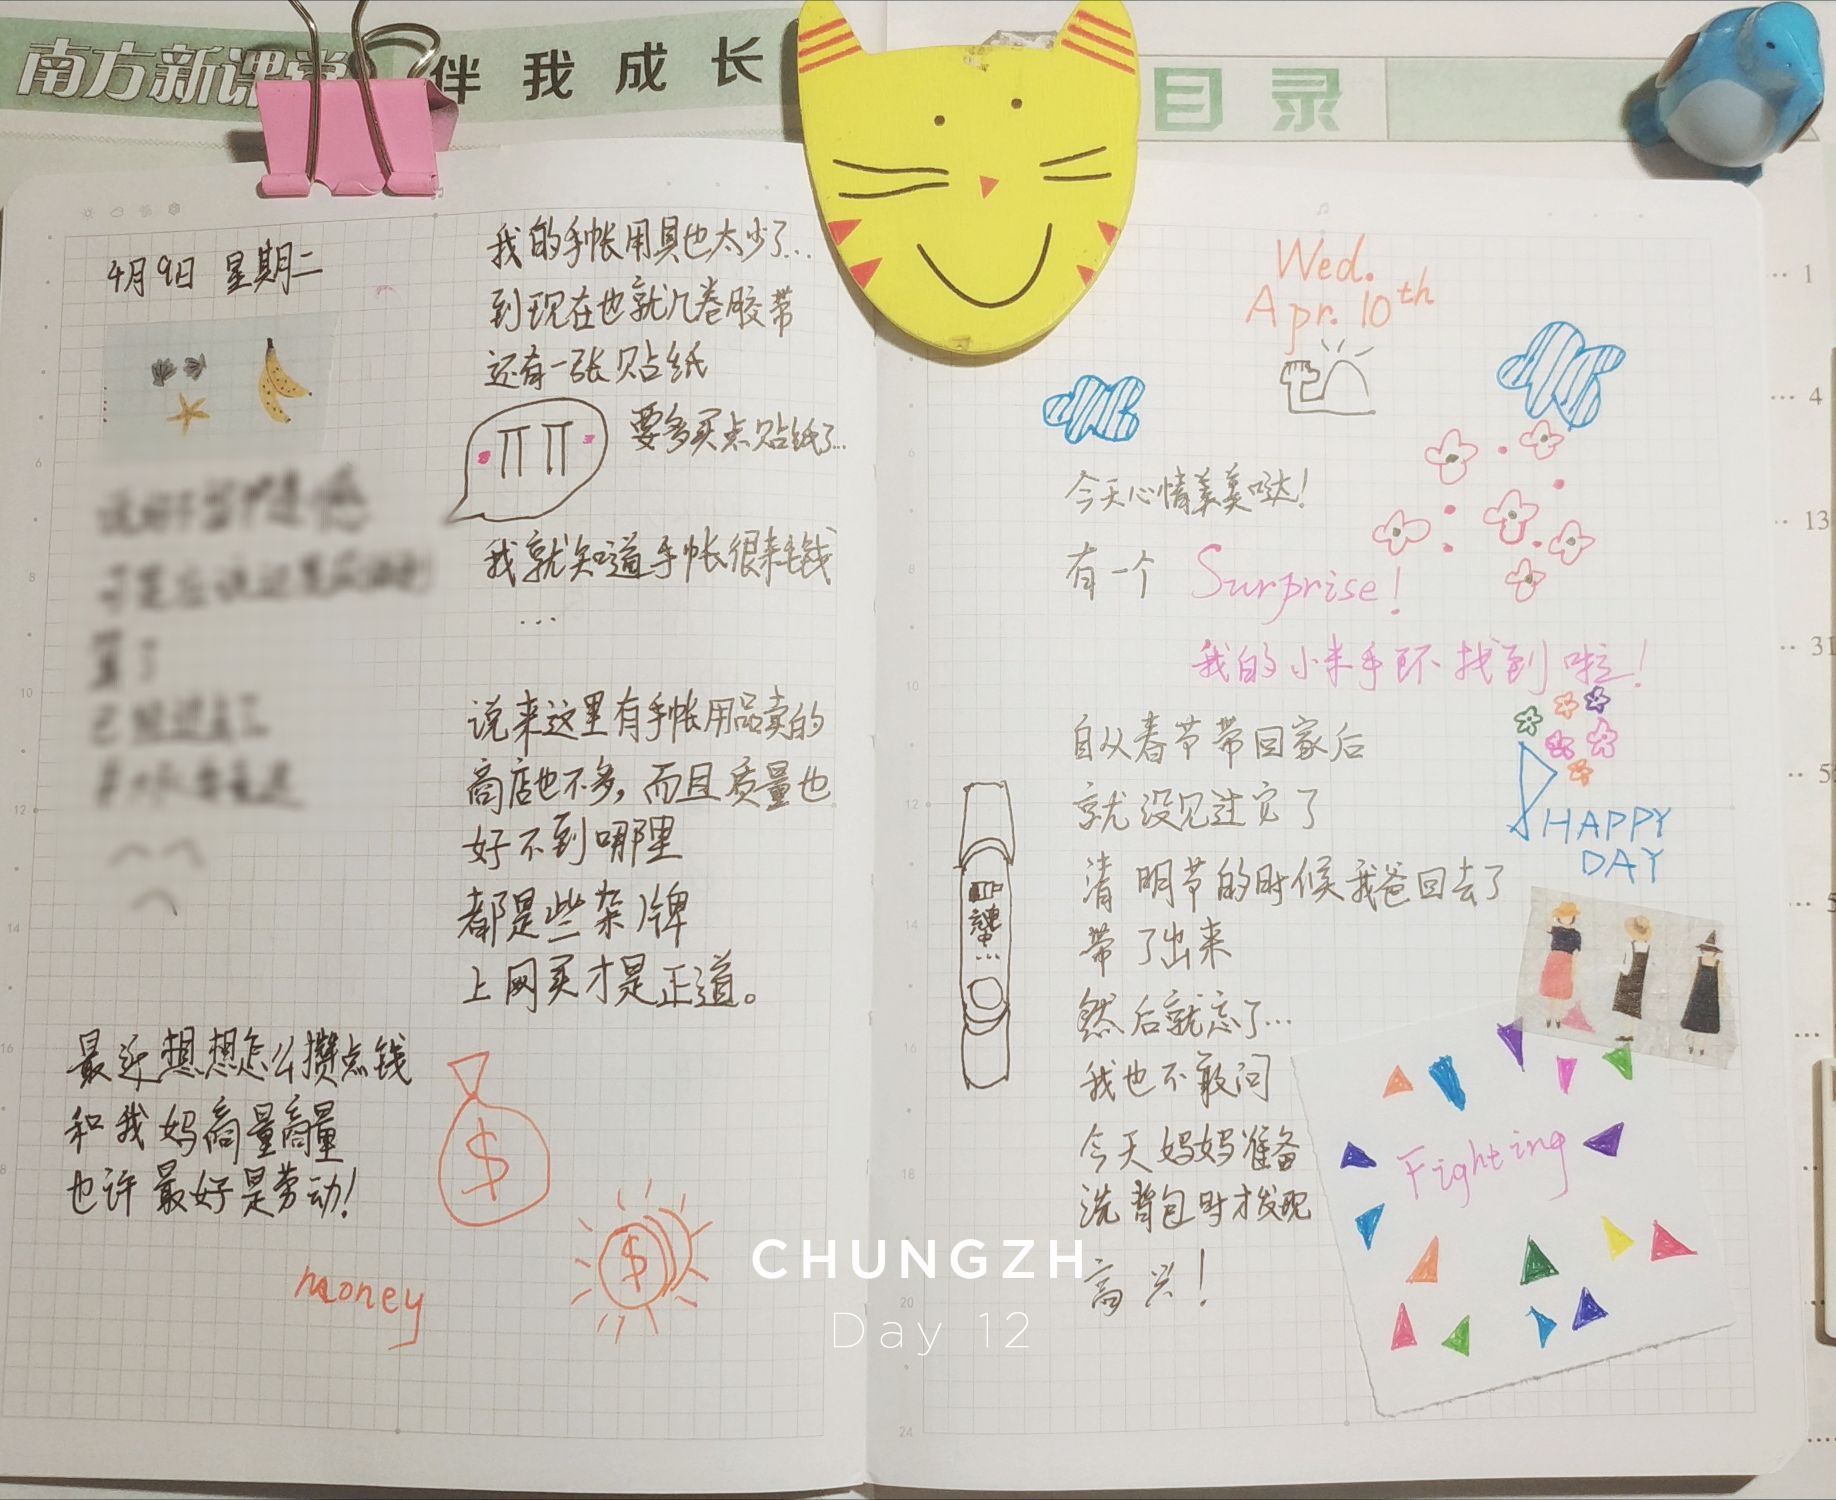 伴我成长
目录
4月9日 星期二
我的手帐用具也太少了...
到现在也就几卷胶带
还有一张贴纸
要多买点贴纸了...
我就知道手帐很耗钱
...
说来这里有手帐用品卖的
商店也不多，而且质量也
好不到哪里
都是些杂牌
上网买才是正道。
最近想想怎么攒点钱
和我妈商量商量
也许最好是劳动！
$
$
money
Wed.
Apr. 10th
今天心情美美哒！
有一个 Surprise!
我的小米手环找到啦！
自从春节带回家后
就没见过它了
清明节的时候我爸回去了
带了出来
然后就忘了...
我也不敢问
今天妈妈准备
洗背包时才发现
高兴！
HAPPY
DAY
Fighting
CHUNGZH
Day 12
1
4
13
31